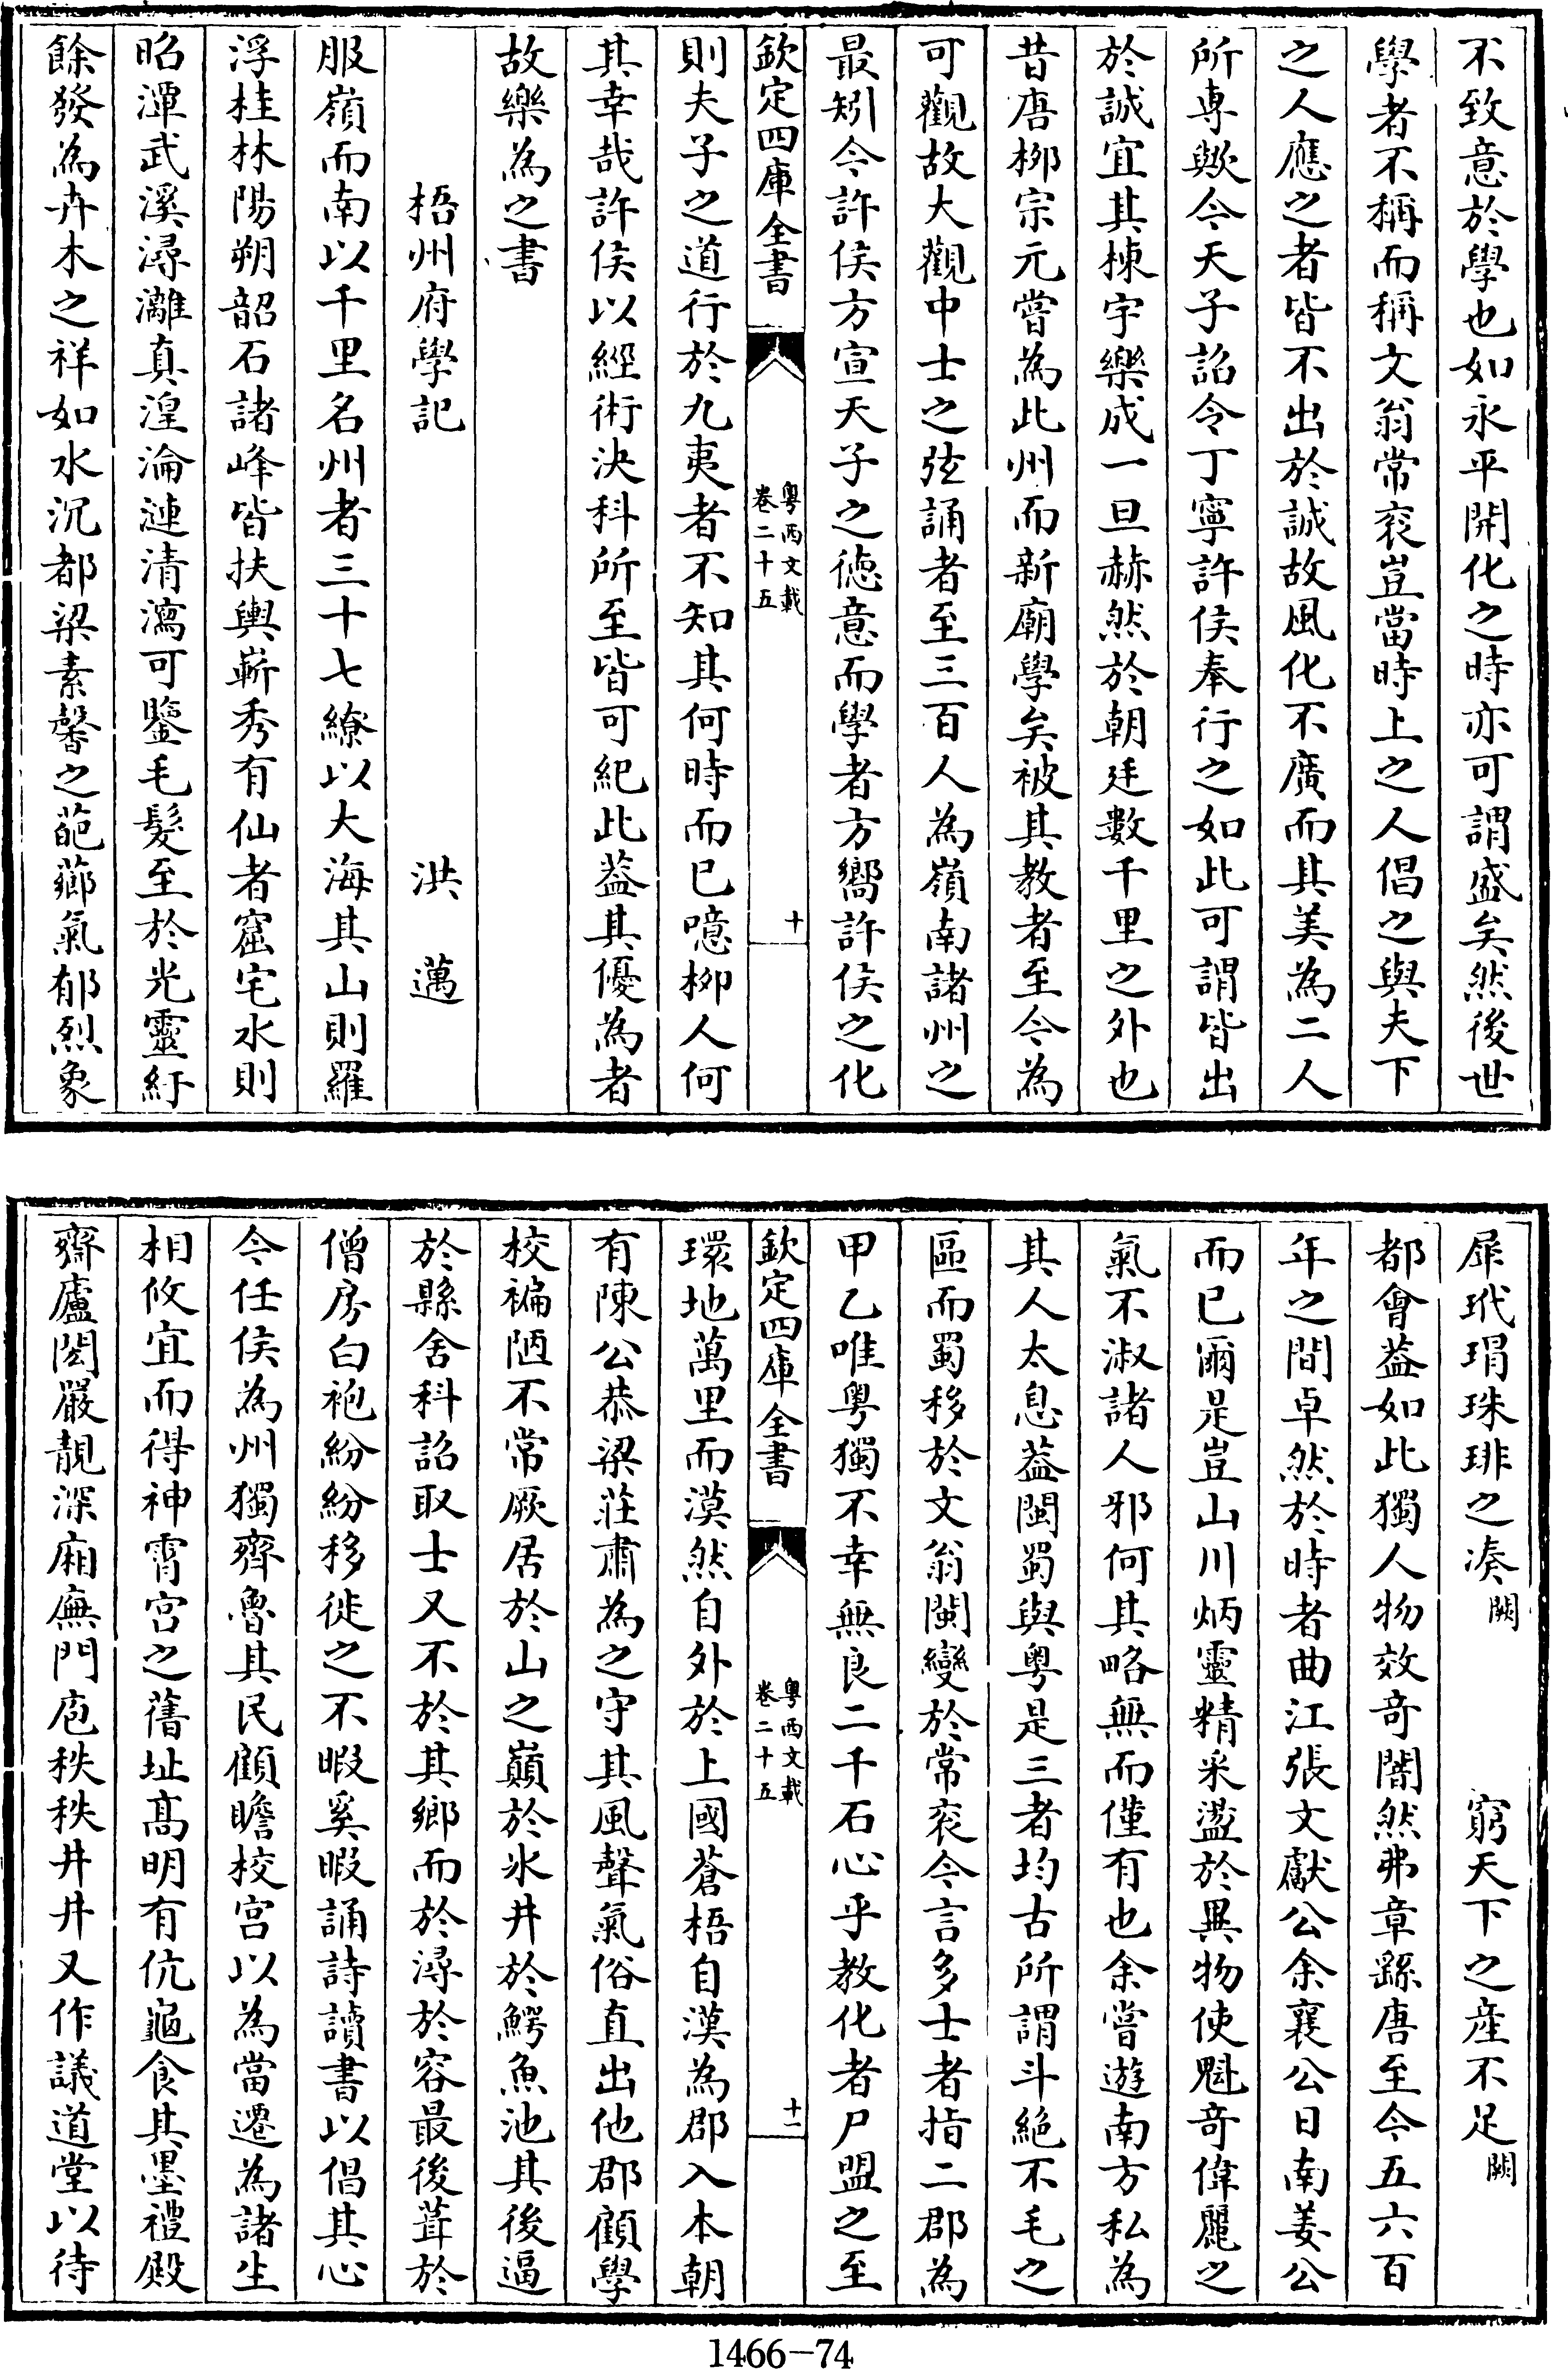 不致意於學也如永平開化之時亦可謂盛矣然後世
學者不稱而稱文翁常衮豈當時上之人倡之與夫下
之人應之者皆不出於誠故風化不廣而其美為二人
所専歟今天子詔令丁寧許侯奉行之如此可謂皆出
於誠宜其棟宇樂成一旦赫然於朝廷數千里之外也
昔唐栁宗元嘗為此州而新廟學矣被其教者至今為
可觀故大觀中士之弦誦者至三百人為嶺南諸州之
最矧今許侯方宣天子之徳意而學者方嚮許侯之化
欽定四庫全書
粤西文載
卷二十五
十
則夫子之道行於九夷者不知其何時而已噫栁人何
其幸哉許侯以經術決科所至皆可紀此葢其優為者
故樂為之書
梧州府學記
洪邁
服嶺而南以千里名州者三十七繚以大海其山則羅
浮桂林陽朔韶石諸峰皆扶輿嶄秀有仙者窟宅水則
昭潭武溪潯灕真湟淪漣清瀉可鑒毛髮至於光靈紆
餘發為卉木之祥如水沉都梁素馨之葩薌氣郁烈象
犀玳瑁珠琲之湊闕窮天下之産不足闕
都會葢如此獨人物效奇闇然弗章繇唐至今五六百
年之間卓然於時者曲江張文獻公余襄公日南姜公
而已爾是豈山川炳靈精采盪於異物使魁奇偉麗之
氣不淑諸人邪何其略無而僅有也余嘗遊南方私為
其人太息葢閩蜀與粤是三者均古所謂斗絶不毛之
區而蜀移於文翁閩變於常衮今言多士者指二郡為
甲乙唯粤獨不幸無良二千石心乎教化者尸盟之至
欽定四庫全書
粤西文載
卷二十五
十一
環地萬里而漠然自外於上國蒼梧自漢為郡入本朝
有陳公恭梁莊肅為之守其風聲氣俗直出他郡顧學
校褊陋不常厥居於山之巔於氷井於鰐魚池其後逼
於縣舍科詔取士又不於其鄉而於潯於容最後葺於
僧房白袍紛紛移徙之不暇奚暇誦詩讀書以倡其心
今任侯為州獨齊魯其民顧瞻校宫以為當遷為諸生
相攸宜而得神霄宫之舊址髙明有伉龜食其墨禮殿
齋廬閎嚴靚深廂廡門庖秩秩井井又作議道堂以待
1466-74